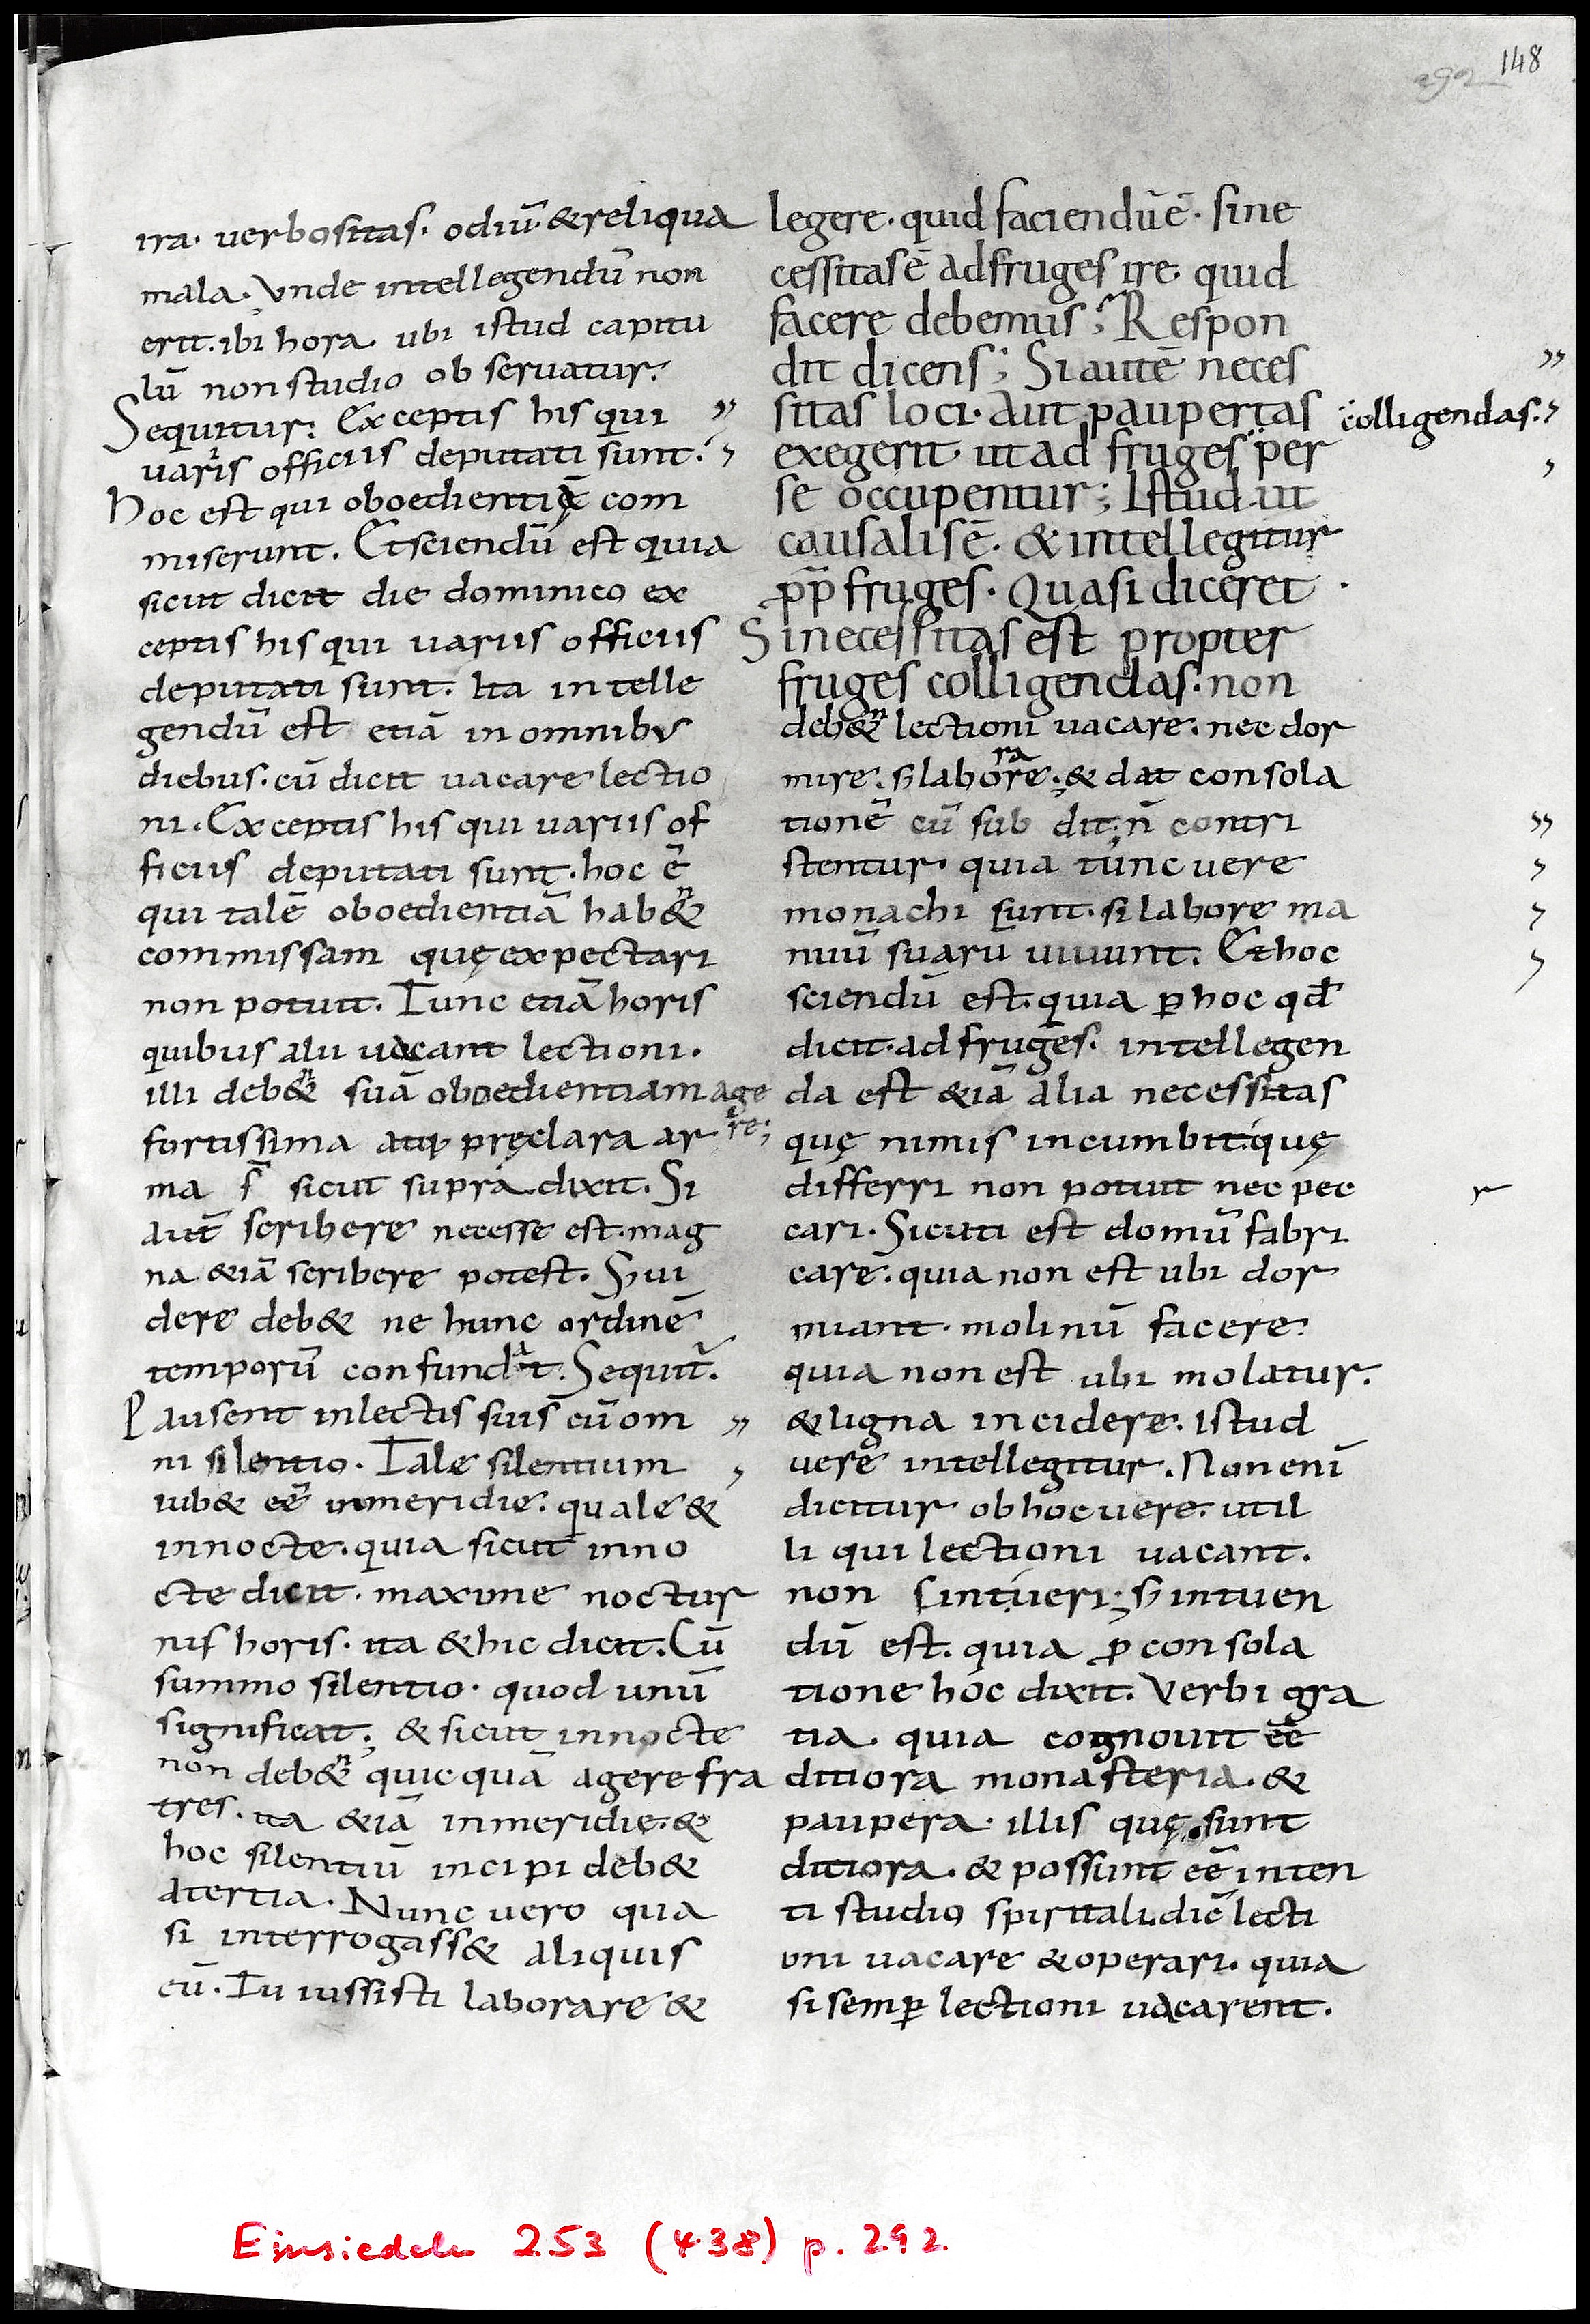 148
292
ira. uerbositas. odiū. &reliqua
mala. Vnde intellegendū non
erit. ibi hora. ubi istud capitu
lū non studio obseruatur.
Sequitur: Exceptis his qui
uariis officiis deputati sunt.
Hoc est qui oboedientiā com
miserunt. Et sciendū est quia
sicut dicit die dominico ex
ceptis his qui uariis officiis
deputati sunt. Ita intelle
gendū est etiā in omnibus
diebus. cū dicit uacare lectio
ni. Exceptis his qui uariis of
ficiis deputati sunt. hoc ē
qui talē oboedientiā hab&n
commissam quę expectari
non potuit. Tunc etiā horis
quibus alii uacant lectioni.
illi deb&n suā oboedientiam age
re;
fortissima atq; pręclara ar
ma s̄ sicut supra dixit. Si
aut̄ scribere necesse est. mag
na &iā scribere potest. S; ui
dere deb& ne hunc ordinē
temporū confundat. Sequit̄.
Pausent in lectis suis cū om
ni silentio. Tale silentium
iub& eē in meridie. quale &
in nocte. quia sicut in no
cte dicit. maxime noctur
nis horis. ita & hic dicit. Cū
summo silentio. quod unū
significat; & sicut in nocte
non deb&n quicquā agere fra
tres. ita &iā in meridie. &
hoc silentiū incipi deb&
a tertia. Nunc uero qua
si interrogass& aliquis
eū. Tu iussisti laborare &
legere. quid faciendū ē. si ne
cessitas ē ad fruges ire. quid
facere debemus; Respon
dit dicens; Si autē neces
sitas loci. aut paupertas
colligendas.
exegerit. ut ad fruges per
se occupentur; Istud ut
causalis ē. & intellegitur
p̄p fruges. Quasi diceret.
Si necessitas est propter
fruges colligendas. non
deb&n lectioni uacare. nec dor
mire. s; laborare; & dat consola
tionē cū sub dit; n̄ contri
stentur. quia tunc uere
monachi sunt. si labore ma
nuū suarū uiuunt. Et hoc
sciendū est. quia p hoc qd̄
dicit. ad fruges. intellegen
da est &iā alia necessitas
quę nimis incumbit. quę
differri non potuit nec pec
cari. Sicuti est domū fabri
care. quia non est ubi dor
miant. molinū facere.
quia non est ubi molatur.
& ligna incidere. Istud
uere intellegitur. Non enī
dicitur ob hoc uere. ut il
li qui lectioni uacant.
non sint ueri; s; intuen
dū est. quia p consola
tione hoc dixit. Verbi gra
tia. quia cognouit eē
ditiora monasteria. &
paupera. illis quę sunt
ditiora. & possunt eē inten
ti studio spiritali. dic̄ lecti
oni uacare & operari. quia
si semp lectioni uacarent.
Einsiedeln 253 (438) p. 292.